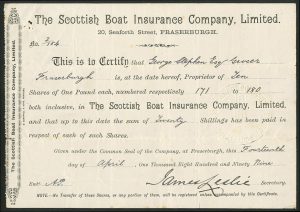 The Scottish Boat Insurance Company, Limited.
20, Seaforth Street, FRASERBURGH.
No. 2/104
This is to Certify that George Stephen Esq
Fraserburgh is, at the date hereof, Proprietor of Ten
Shares of One Pound each, numbered respectively 171 to 180
both inclusive, in The Scottish Boat Insurance Company, Limited,
and that up to this date the sum of Twenty Shillings has been paid in
respect of each of such Shares.
Given under the Common Seal of the Company, at Fraserburgh, this Fourteenth
day of April, One Thousand Eight Hundred and Ninety Nine.
Entd.
James Leslie Secretary.
NOTE.—No Transfer of these Shares, or any portion of them, will be registered unless accompanied by this Certificate.
The Scottish Boat Insurance Company, Limited.